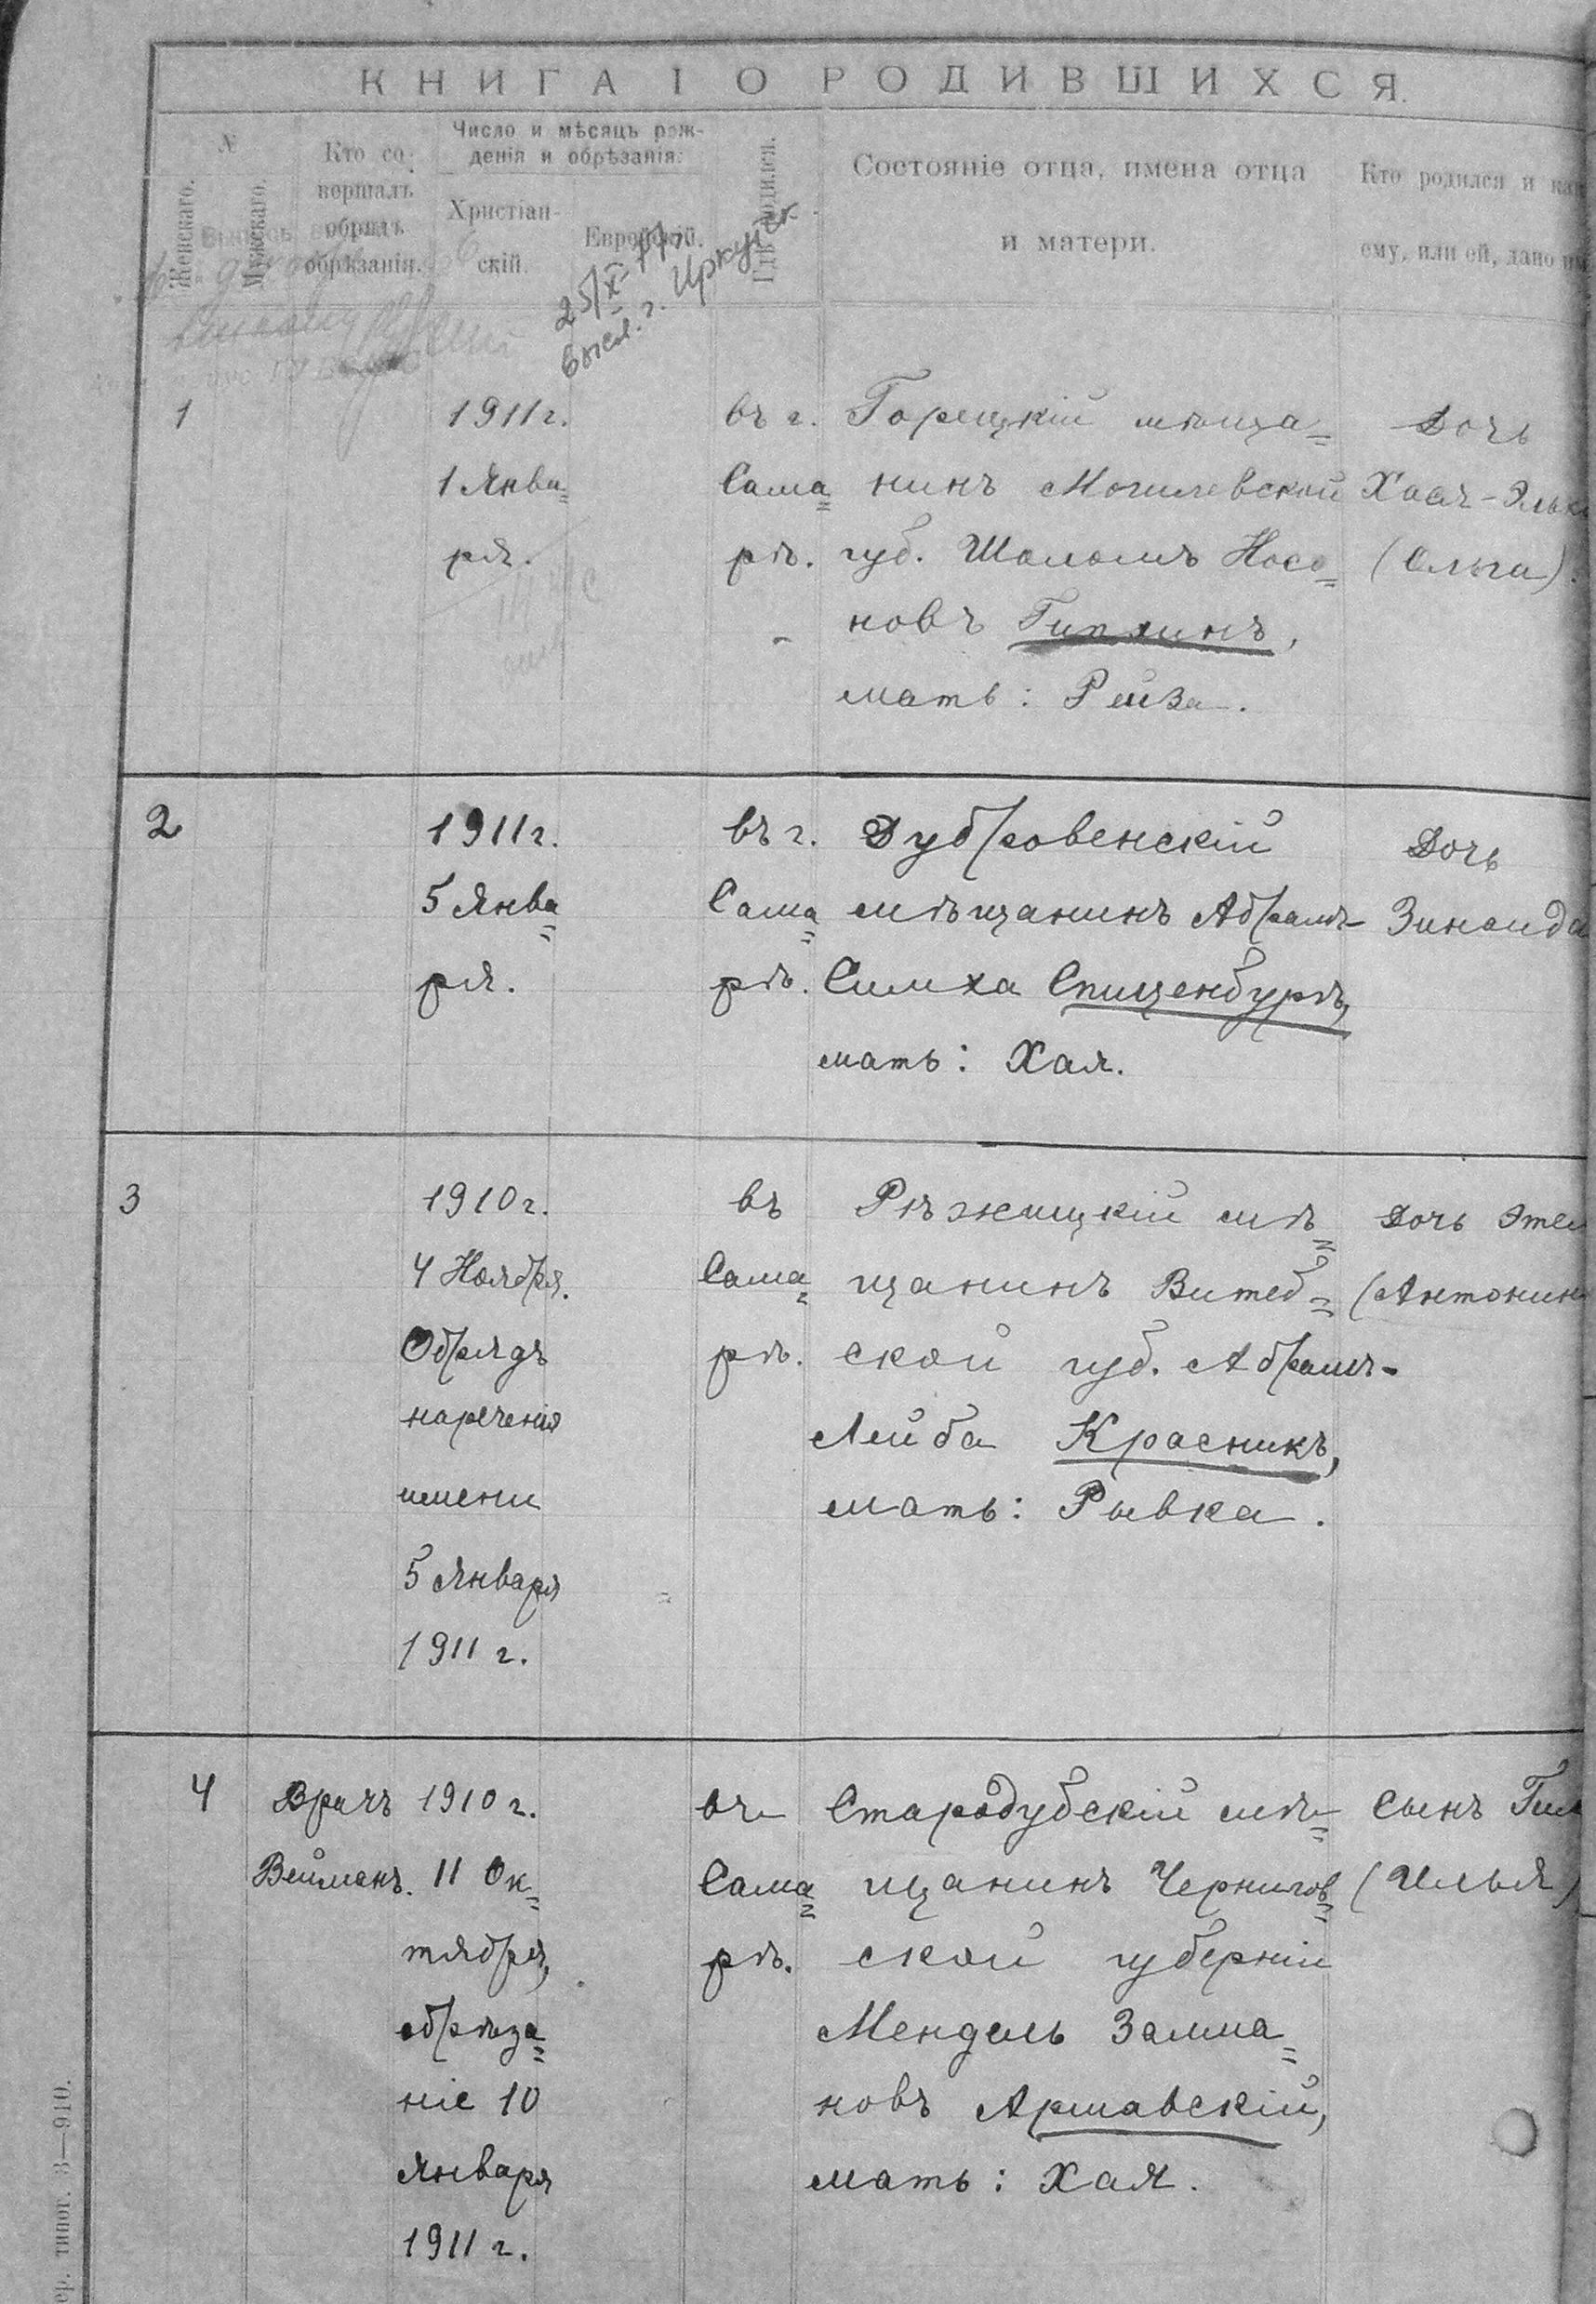 КНИГА I О РОДИВШИХСЯ.
№
Женскаго.
Мужскаго.
Кто со-
вершалъ
обрядъ
обрѣзанія.
Число и мѣсяцъ рож-
денія и обрѣзанія:
Христіан-
скій.
Еврейскій.
Гдѣ родился.
Состояніе отца, имена отца
и матери.
Кто родился и как
ему, или ей, дано
25/X-77г.
высл. г. Иркутск
1
1911 г.
1 Янва=
ря.
въ г.
Сама=
рѣ.
Горецкій мѣща=
нинъ Могилевской
губ. Шоломъ Носо=
новъ
мать: Рейза.
Дочь
Хася-Эльк
(Ольга).
2
1911 г.
5 Янва=
ря.
въ г.
Сама=
рѣ.
Дубровенскій
мѣщанинъ Абрамъ-
Симха Спиценбургъ,
мать: Хая.
Дочь
Зинаида
3
1910 г.
4 Ноября.
Обрядъ
наречения
имени
5 Января
1911 г.
въ
Сама=
рѣ.
Рѣжицкій мѣ=
щанинъ Витеб=
ской губ. Абрамъ-
Лейба Красникъ,
мать: Рывка.
Дочь Этел
(Антонин
4
Врачъ
Вейманъ.
1910 г.
11 Ок=
тября,
обрѣза=
ніе 10
Января
1911 г.
въ
Сама=
рѣ.
Стародубскій мѣ=
щанинъ Чернигов=
ской губерніи
Мендель Залма=
новъ Аршавскій,
мать: Хая.
Сынъ
(Илья)
ер. типог. 3—910.